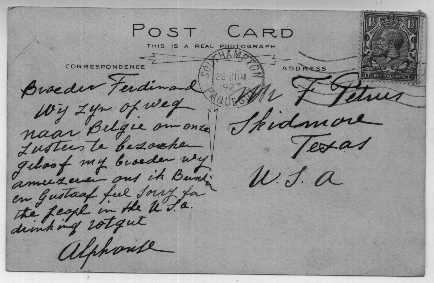 POST CARD
THIS IS A REAL PHOTOGRAPH
CORRESPONDENCE
ADDRESS
SOUTHAMPTON
Broeder Ferdinand
Wy zyn op weg
naar Belgie om onze
zusters te bezoeken
geloof my broeder wy
amuzeren ons ik
en Gustaaf feel sorry for
the peopl in the U.S.a.
drinking rotgut
Alphonse
Mr F Petrus
Skidmore
Texas
U.S.A